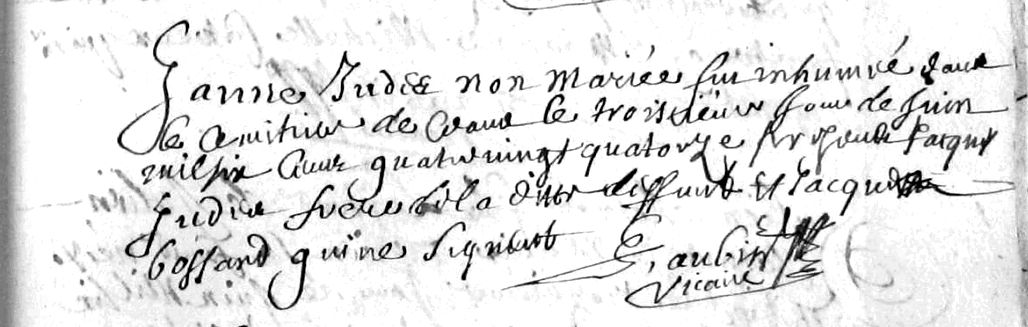 Janne Judes non mariée fut inhumée dans
le cemitiere de Ceans le troisieme Jour de Juin
mil six Cens quatre vingt quatorze presens Jacques
Judes frere de la ditte deffunte Et Jacques
bossard qui ne signent
G, aubin
vicaire